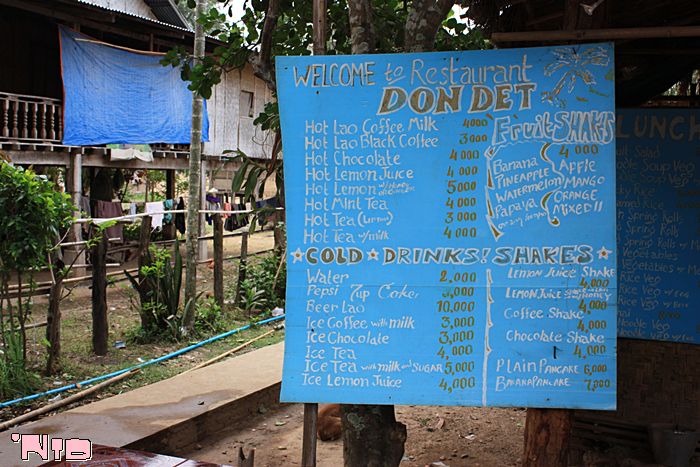 WELCOME to Restaurant
DON DET
Hot Lao Coffee Milk 4000
Hot Lao Black Coffee 3000
Hot Chocolate 4000
Hot Lemon Juice 4000
Hot Lemon 5000
Hot Mint Tea 4000
Hot Tea 3000
Hot Tea w/milk 4000
Fruit SHAKES
4000
Banana
PINEAPPLE
WATERMELON
Papaya
APPLE
MANGO
ORANGE
MIXED!!
COLD DRINKS! SHAKES
Water 2,000
Pepsi 7up Coke
Beer Lao 10,000
Ice Coffee with milk 3,000
Ice Chocolate 3,000
Ice Tea 4,000
Ice Tea with milk and SUGAR 5,000
Ice Lemon Juice 4,000
Lemon Juice Shake
4,000
Lemon Juice
honey
4,000
Coffee Shake
4,000
Chocolate Shake
4,000
PLAIN PANCAKE 6,000
BANANA PANCAKE 7,000
LUNCH
Salad
Soup Veg
Spring Rolls
Spring Rolls
Vegetables
Vegetables w/
Rice Veg
Noodle Veg
'NTD